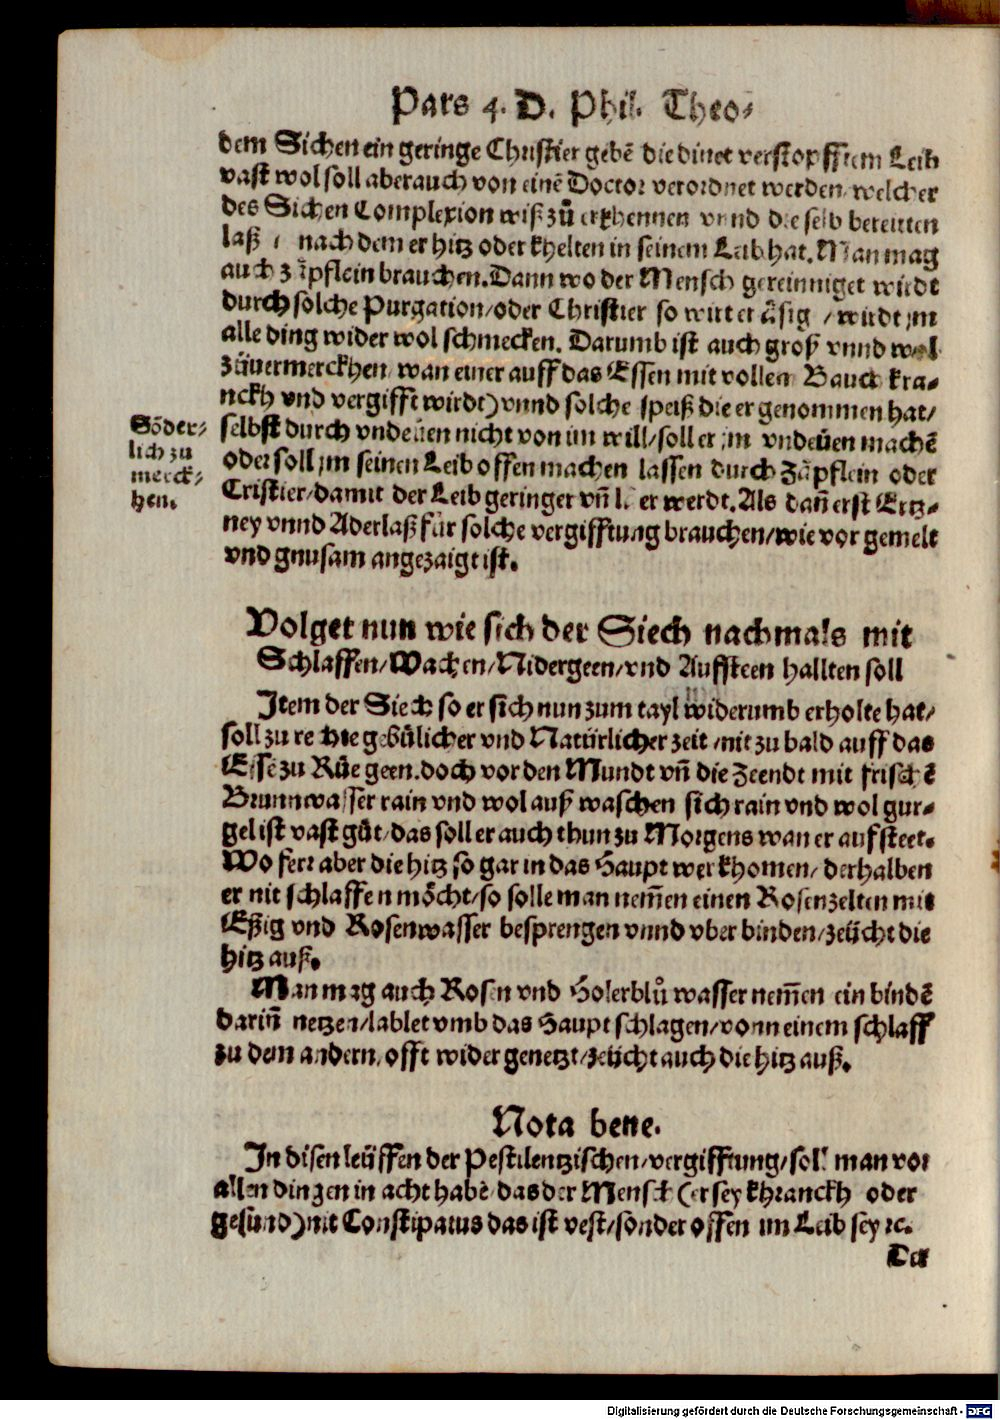 Pars 4. D. Phil. Theo⸗
dem Sichen ein geringe Christier gebē die dinet verstopfftem Leib
vast wol soll aber auch von einē Doctor verordnet werden, welcher
des Sichen Complexion wiß zů erkhennen vnnd die selb bereitten
laß nach dem er hitz oder khelten in seinem Leib hat. Man mag
auch zäpflein brauchen. Dann wo der Mensch gereinniget wirdt
durch solche Purgation/oder Christier so wirt er äsig / wirdt jm
alle ding wider wol schmecken. Darumb ist auch groß vnnd wol
züuermerckhen wan einer auff das Essen mit vollen Bauch kra⸗
nckh vnd vergifft wirdt) vnnd solche speiß die er genommen hat/
selbst durch vndeüen nicht von im will/soll er jm vndeüen machē
oder soll jm seinen Leib offen machen lassen durch Zäpflein oder
Cristier/damit der Leib geringer vñ er werdt. Als dañ erst Ertz⸗
ney vnnd Aderlaß für solche vergifftung brauchen/wie vor gemelt
vnd gnusam angezaigt ist.
Söder⸗
lich zu
merck⸗
hen.
Volget nun wie sich der Siech nachmals mit
Schlaffen/Wachen/Nidergeen/vnd Auffsteen hallten soll
Item der Siech so er sich nun zum tayl widerumb erholte hat/
soll zu rechte gebülicher vnd Natürlicher zeit/nit zu bald auff das
Essē zu Rüe geen. doch vor den Mundt vñ die Zeendt mit frischē
Brunnwasser rain vnd wol auß waschen sich rain vnd wol gur⸗
gel ist vast güt/das soll er auch thun zu Morgens wan er aufsteet.
Wo ferr aber die hitz so gar in das Haupt wer khomen/ derhalben
er nit schlaffen möcht/so solle man nem̄en einen Rosenzelten mit
Eßig vnd Rosenwasser besprengen vnnd vber binden/zeücht die
hitz auß.
Man mag auch Rosen vnd Holerblů wasser nem̄en ein bindē
dariñ netzen/lablet vmb das Haupt schlagen/vonn einem schlaff
zu dem andern, offt wider genetzt/zeücht auch die hitz auß.
Nota bene.
In disen leüffen der Pestilentzischen/vergifftung/soll man vor
allen dingen in acht habē/das der Mensch (er sey khranckh oder
gesund) nit Constipatus das ist vest/sonder offen im Leib sey ꝛc.
Der
Digitalisierung gefördert durch die Deutsche Forschungsgemeinschaft - DFG